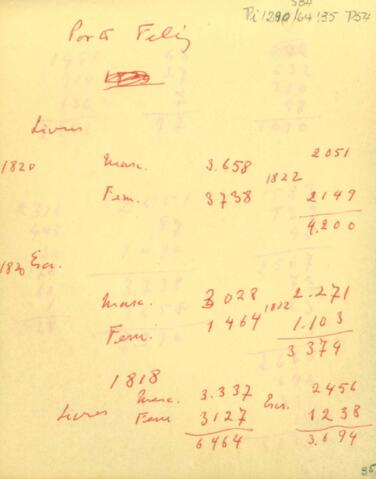 SBH
Pi 1290/64!35 P54
Porto Feliz
Livres
1820 Masc. 3.658 1822 2051
Fem. 3738 2149
4.200
1820 Esc.
Masc. 3028 1822 2.271
Femi. 1464 1.103
3374
1818
Livres Masc. 3.337 Esc. 2456
Fem 3127 1238
6464 3.694
35